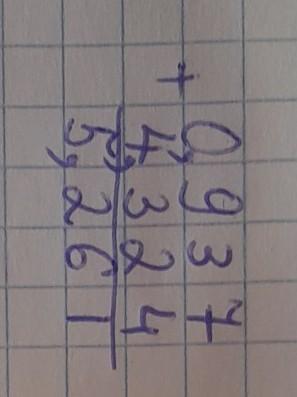 0,937
+
4,324
5,261